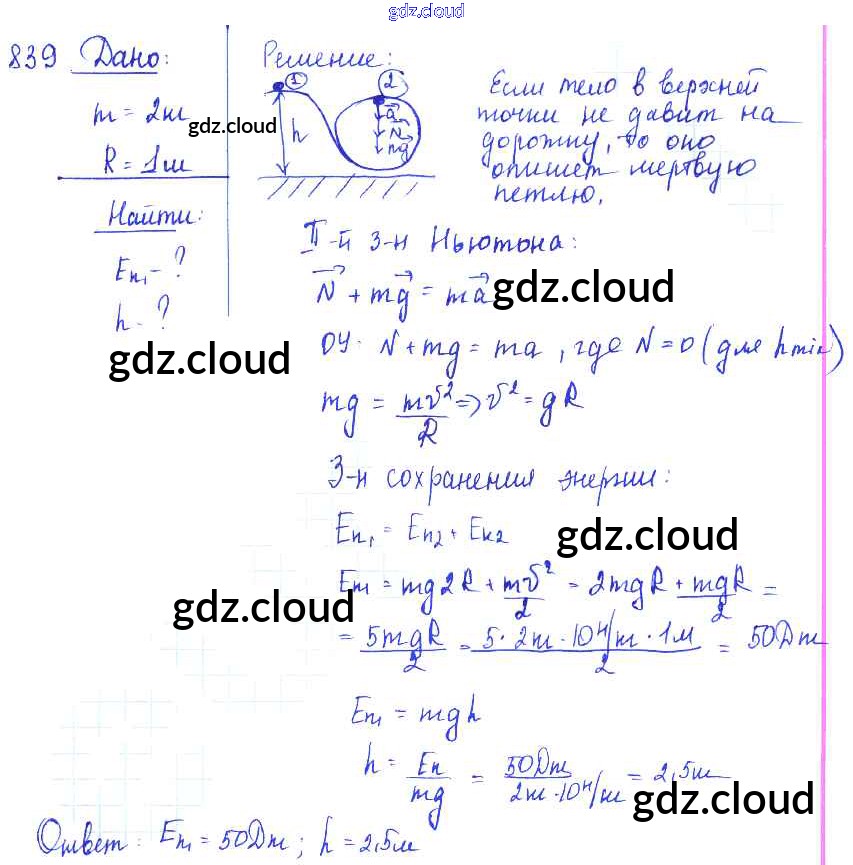 gdz.cloud
839 Дано:
m = 2кг
R = 1м
Найти:
Eп₁ - ?
h - ?
Решение:
1 2
h a⃗ N⃗ mg⃗
Если тело в верхней
точки не давит на
дорожку, то оно
опишет мертвую
петлю.
II-й з-н Ньютона:
N⃗ + mg⃗ = ma⃗
OY: N + mg = ma, где N = 0 (для h min)
mg = mv²/R => v² = gR
З-н сохранения энергии:
Eп₁ = Eп2 + Eк2
Eп₁ = mg2R + mv²/2 = 2mgR + mgR/2 =
= 5mgR/2 = 5·2кг·10 Н/кг·1м/2 = 50Дж
Eп₁ = mgh
h = Eп/mg = 50Дж/2кг·10 Н/кг = 2,5м
Ответ: Eп₁ = 50Дж; h = 2,5м
gdz.cloud
gdz.cloud
gdz.cloud
gdz.cloud
gdz.cloud
gdz.cloud